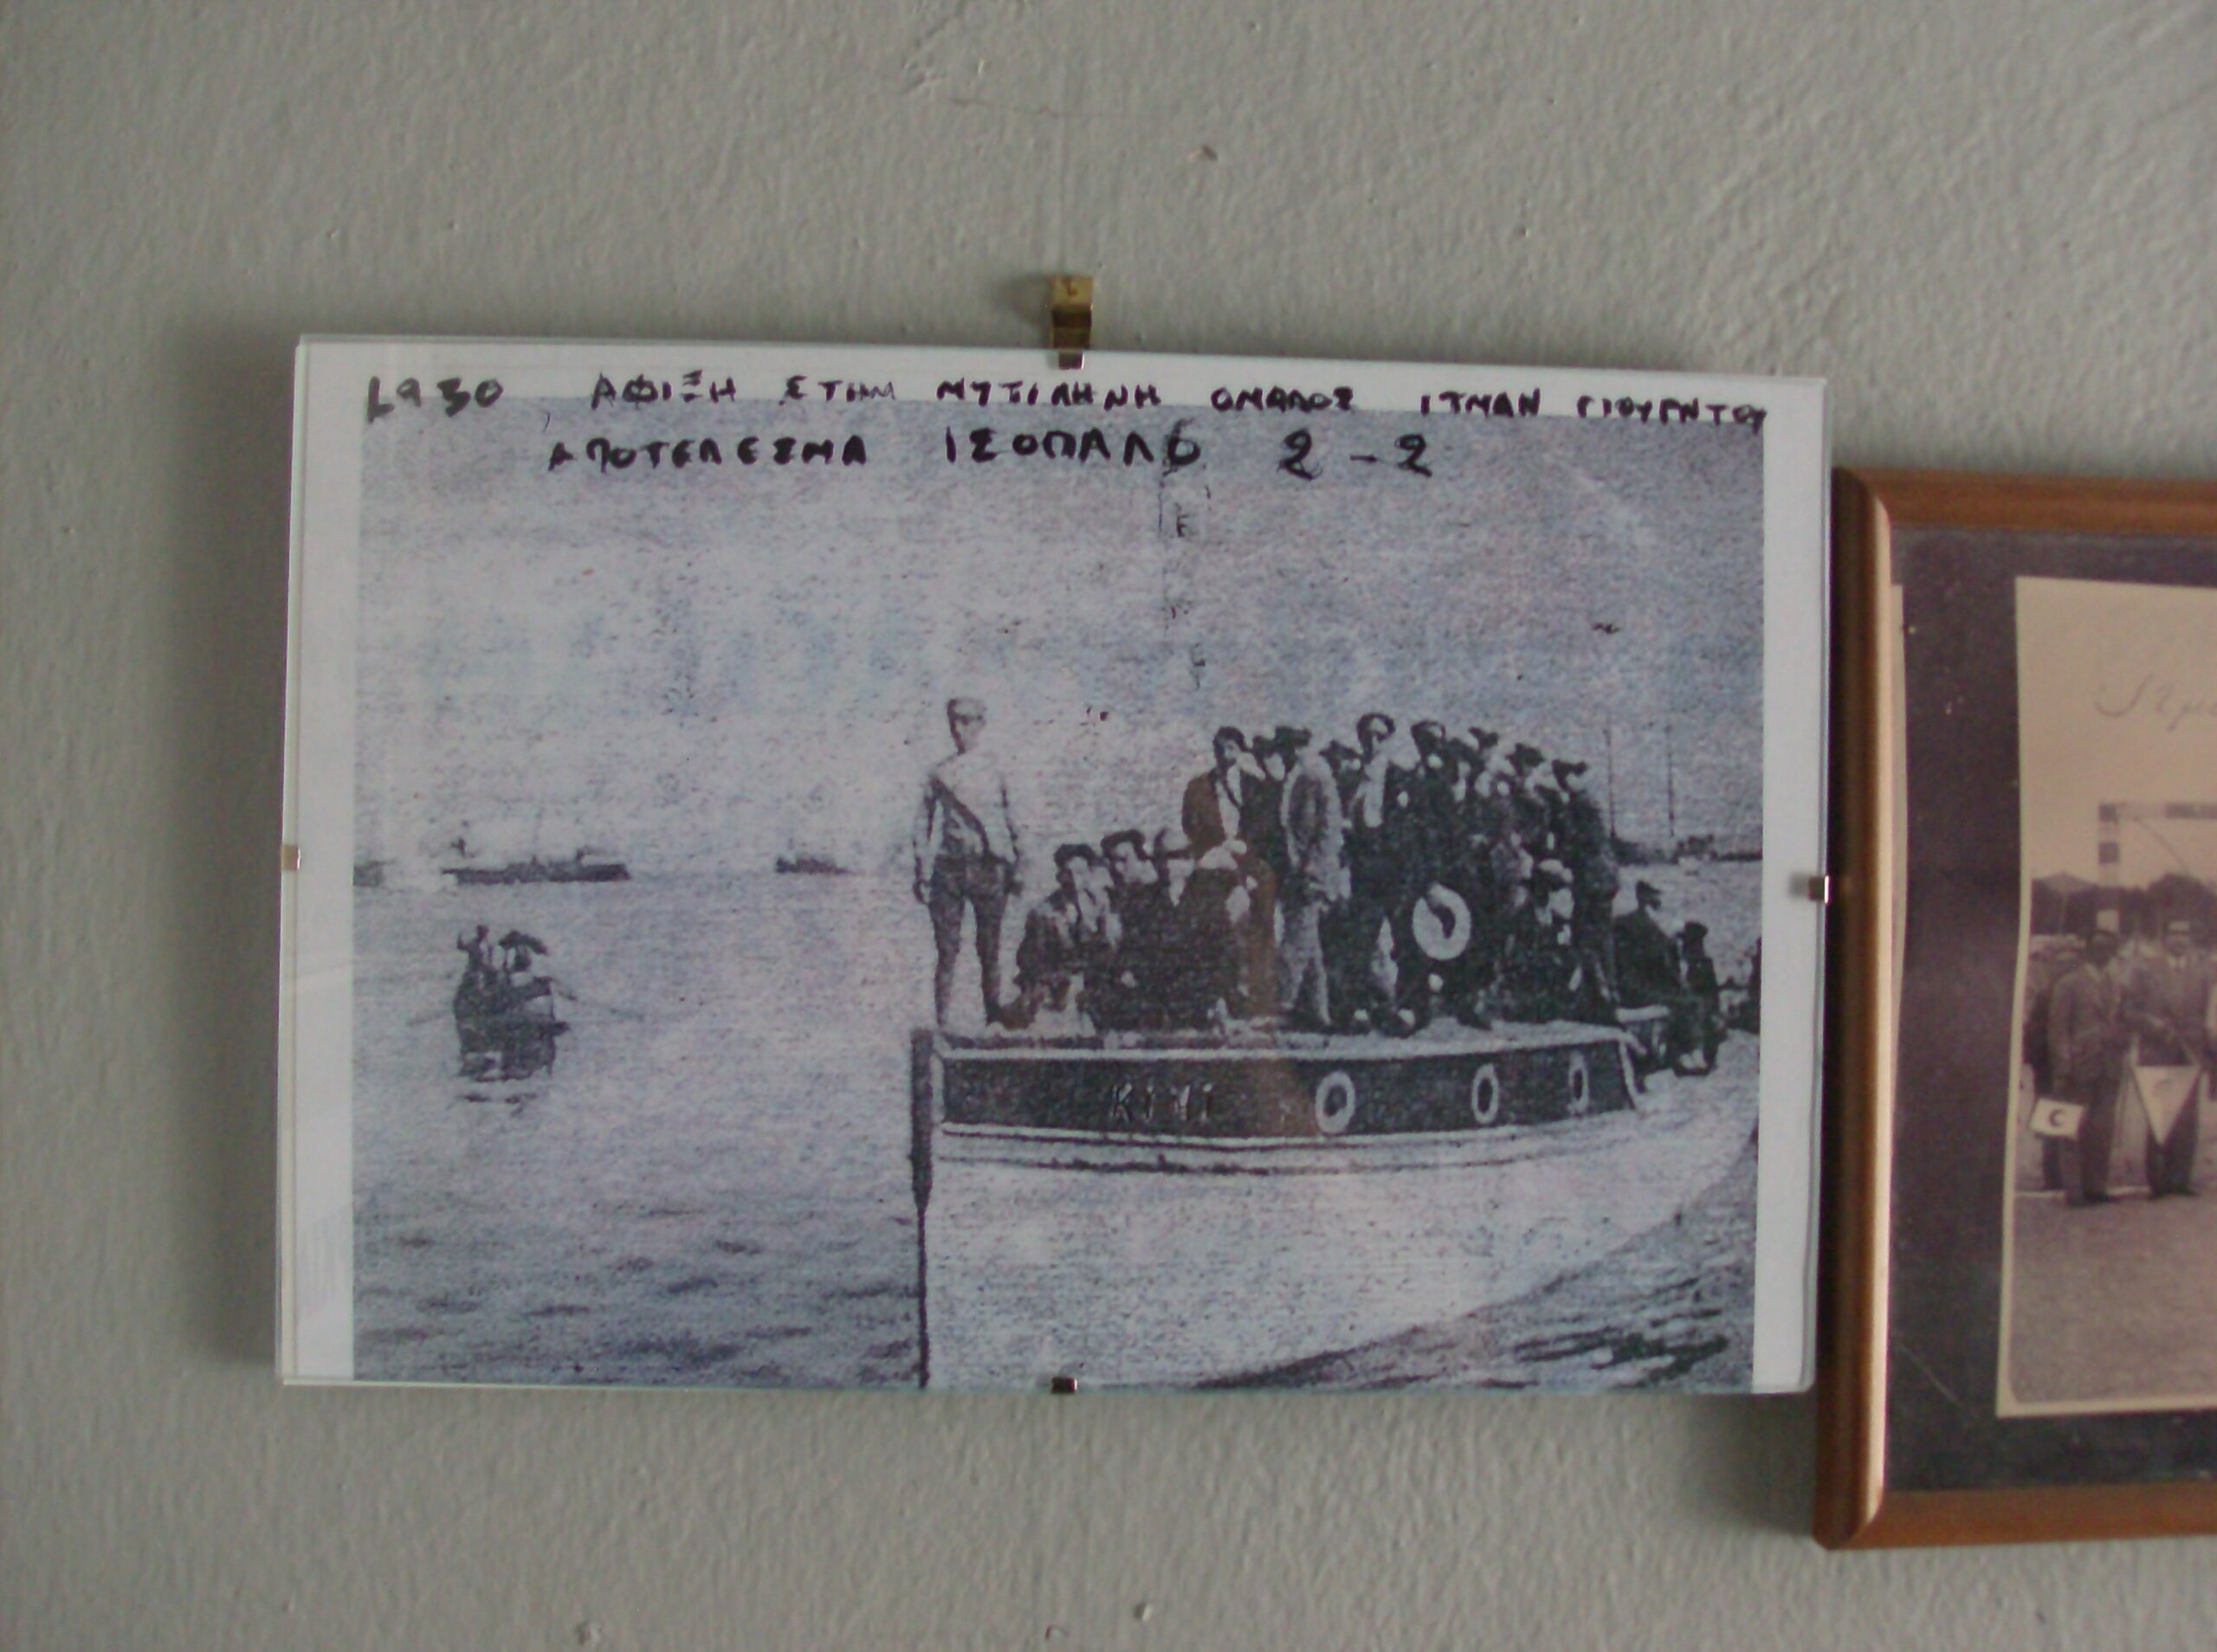 1930 ΑΦΙΞΗ ΣΤΗΝ ΜΥΤΙΛΗΝΗ ΟΜΑΔΟΣ ΙΤΜΑΝ ΓΙΟΥΡΝΤΟΥ
ΑΠΟΤΕΛΕΣΜΑ ΙΣΟΠΑΛΟ 2-2
ΚΙΜΙ
C